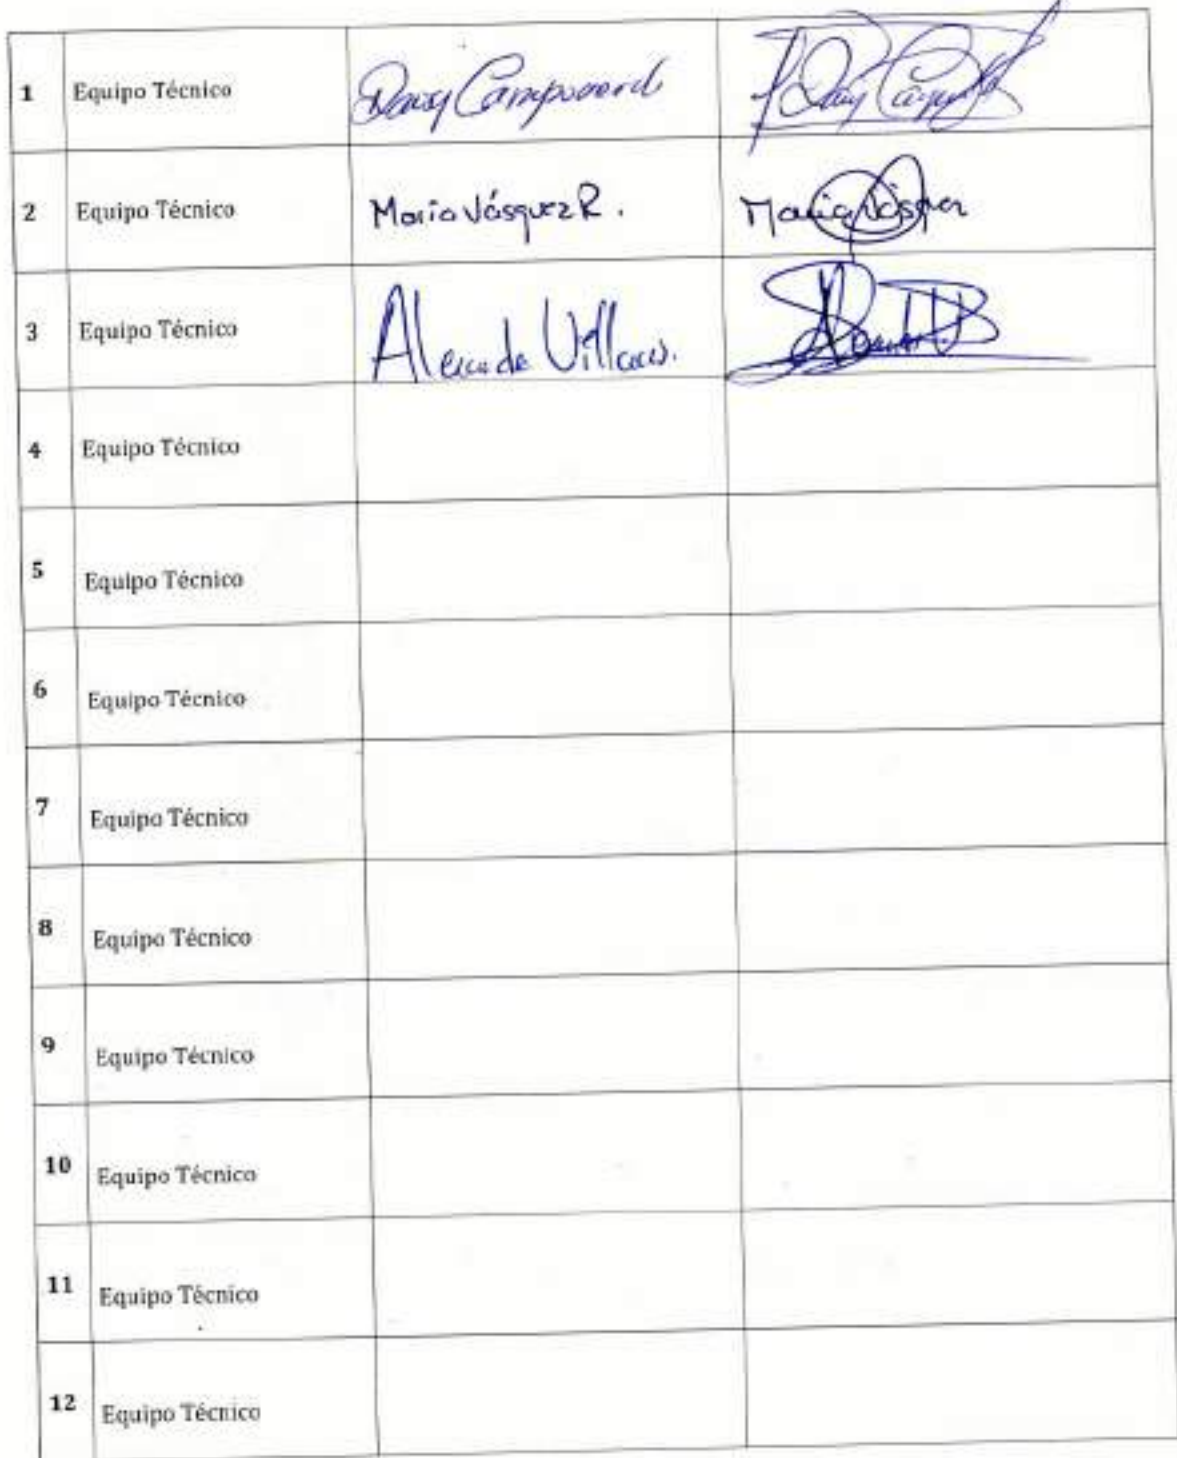 1 Equipo Técnico Daisy Campoverde
2 Equipo Técnico María Vásquez R. María Vásquez
3 Equipo Técnico Villacis.
4 Equipo Técnico
5 Equipo Técnico
6 Equipo Técnico
7 Equipo Técnico
8 Equipo Técnico
9 Equipo Técnico
10 Equipo Técnico
11 Equipo Técnico
12 Equipo Técnico